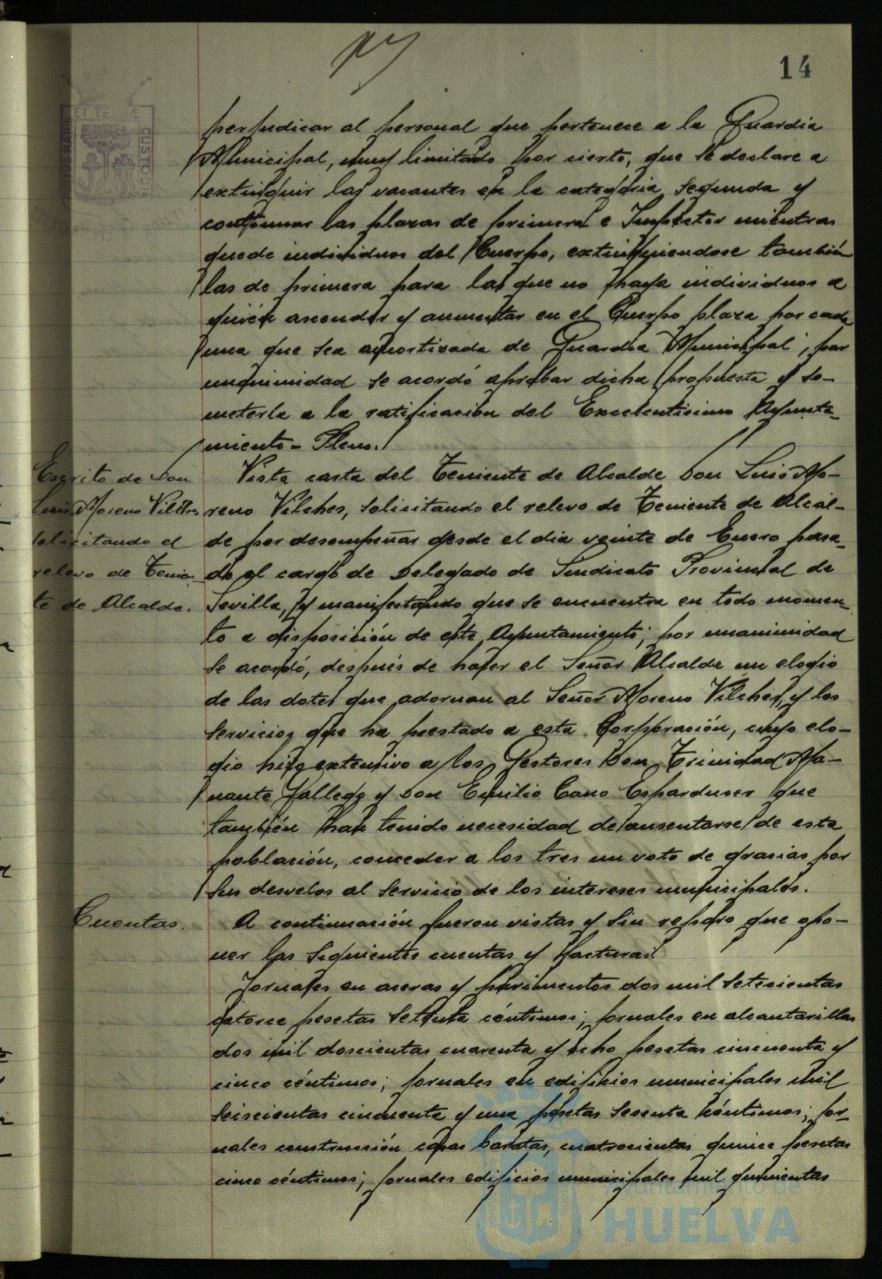 14
perjudicar al personal que pertenece a la Guardia
Municipal, muy limitado por cierto, que se declare a
extinguir las vacantes en la categoria segunda y
continuar las plazas de primera e Inspector mientras
quede individuos del Cuerpo, extinguiendose también
las de primera para las que no haya individuos a
quién ascender y aumentar en el Cuerpo plaza por cada
una que sea amortizada de Guardia Municipal; por
unanimidad se acordó aprobar dicha propuesta y so-
meterla a la ratificación del Excelentísimo Ayunta-
miento-Pleno.
Escrito de Don
Luis Moreno Vilches
solicitando el
relevo de Tenien-
te de Alcalde.
Vista carta del Teniente de Alcalde Don Luis Mo-
reno Vilches, solicitando el relevo de Teniente de Alcal-
de por desempeñar desde el dia veinte de Enero pasa-
do el cargo de Delegado de Sindicato Provincial de
Sevilla, y manifestando que se encuentra en todo momen-
to a disposición de este Ayuntamiento; por unanimidad
se acordó, después de hacer el Señor Alcalde un elogio
de las dotes que adornan al Señor Moreno Vilches, y los
servicios que ha prestado a esta Corporación, cuyo elo-
gio hizo extensivo a los Gestores Don Trinidad Ma-
nante Gallego y Don Emilio Cano que
también han tenido necesidad de ausentarse de esta
población, conceder a los tres un voto de gracias por
sus desvelos al servicio de los intereses municipales.
Cuentas.
A continuación fueron vistas y sin reparo que opo-
ner las siguientes cuentas y facturas:
Jornales en aceras y pavimentos dos mil setecientas
catorce pesetas setenta céntimos; jornales en alcantarillas
dos mil doscientas cuarenta y ocho pesetas cincuenta y
cinco céntimos; jornales en edificios municipales mil
seiscientas cincuenta y una pesetas sesenta céntimos; jor-
nales construcción casas baratas, cuatrocientas quince pesetas
cinco céntimos; jornales edificios municipales mil quinientas
Ayuntamiento de
HUELVA